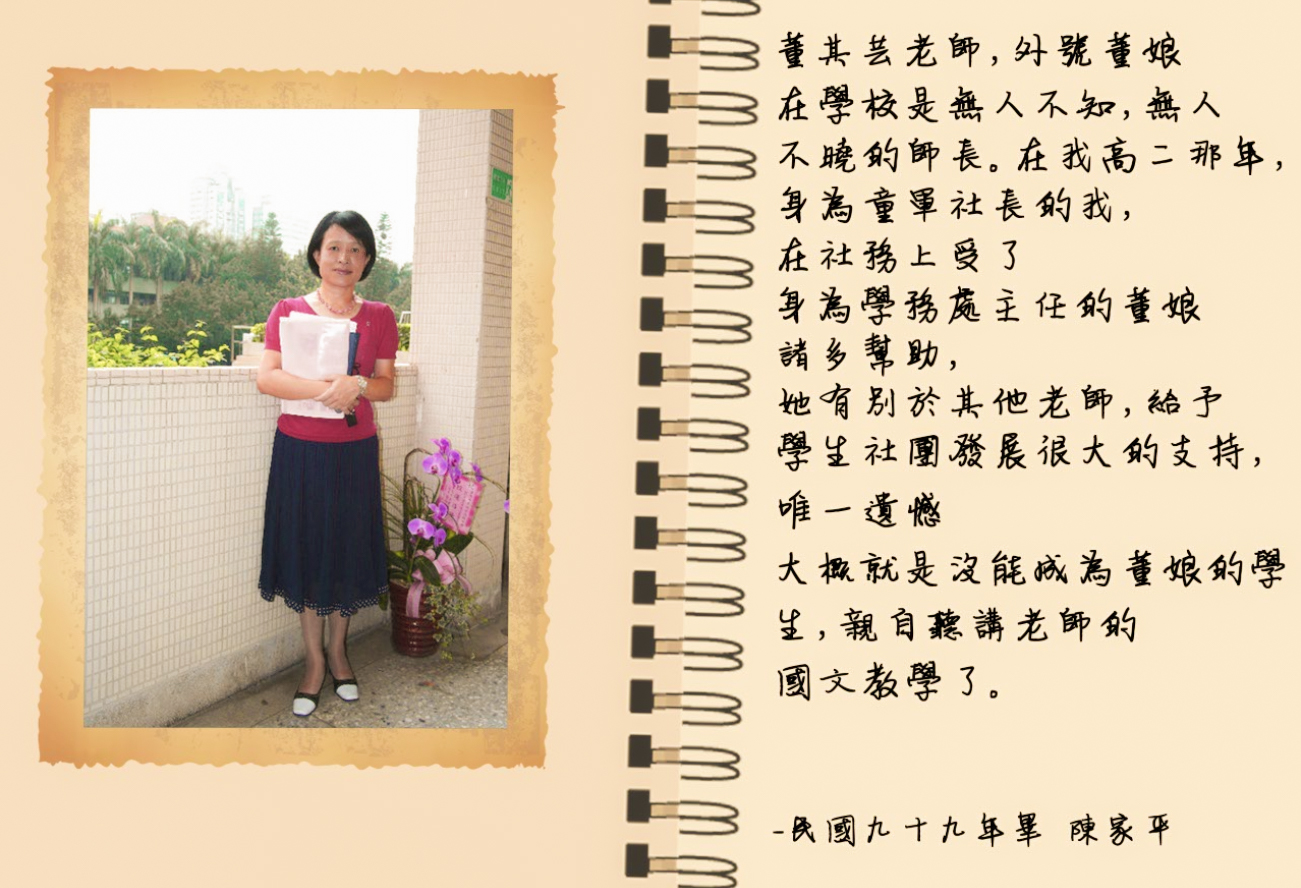 董其芸老師,外號董娘
在學校是無人不知,無人
不曉的師長。在我高二那年,
身為童軍社長的我,
在社務上受了
身為學務處主任的董娘
諸多幫助,
她有別於其他老師,給予
學生社團發展很大的支持,
唯一遺憾
大概就是沒能成為董娘的學
生,親自聽講老師的
國文教學了。
-民國九十九年畢 陳家平